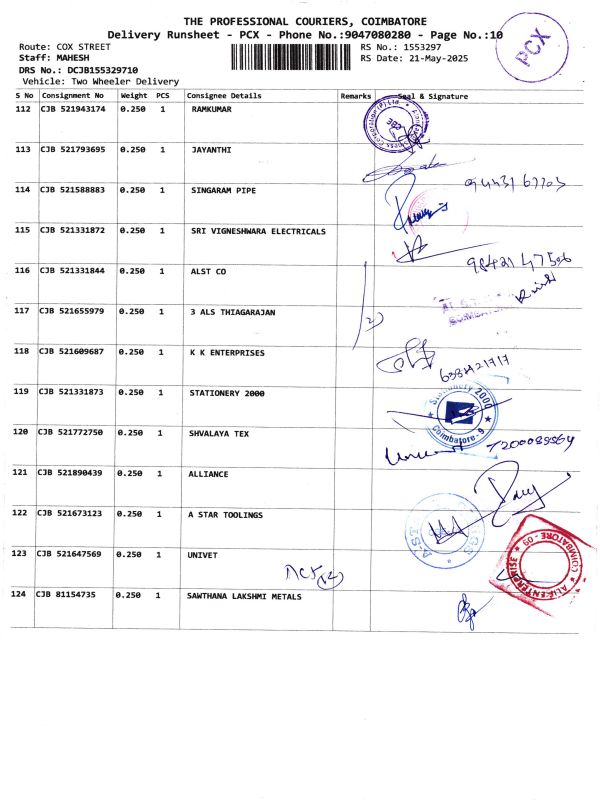 THE PROFESSIONAL COURIERS, COIMBATORE
Delivery Runsheet - PCX - Phone No.:9047080280 - Page No.:10
PCX
Route: COX STREET
RS No.: 1553297
Staff: MAHESH
RS Date: 21-May-2025
DRS No.: DCJB155329710
Vehicle: Two Wheeler Delivery
S No Consignment No Weight PCS Consignee Details Remarks Seal & Signature
112 CJB 521943174 0.250 1 RAMKUMAR
113 CJB 521793695 0.250 1 JAYANTHI
114 CJB 521588883 0.250 1 SINGARAM PIPE
115 CJB 521331872 0.250 1 SRI VIGNESHWARA ELECTRICALS
116 CJB 521331844 0.250 1 ALST CO
117 CJB 521655979 0.250 1 3 ALS THIAGARAJAN
118 CJB 521609687 0.250 1 K K ENTERPRISES
119 CJB 521331873 0.250 1 STATIONERY 2000
Stationery 2000
Coimbatore-9
120 CJB 521772750 0.250 1 SHVALAYA TEX
7200089564
121 CJB 521890439 0.250 1 ALLIANCE
122 CJB 521673123 0.250 1 A STAR TOOLINGS
123 CJB 521647569 0.250 1 UNIVET
ALIF ENTERPRISE
COIMBATORE - 09
124 CJB 81154735 0.250 1 SAWTHANA LAKSHMI METALS